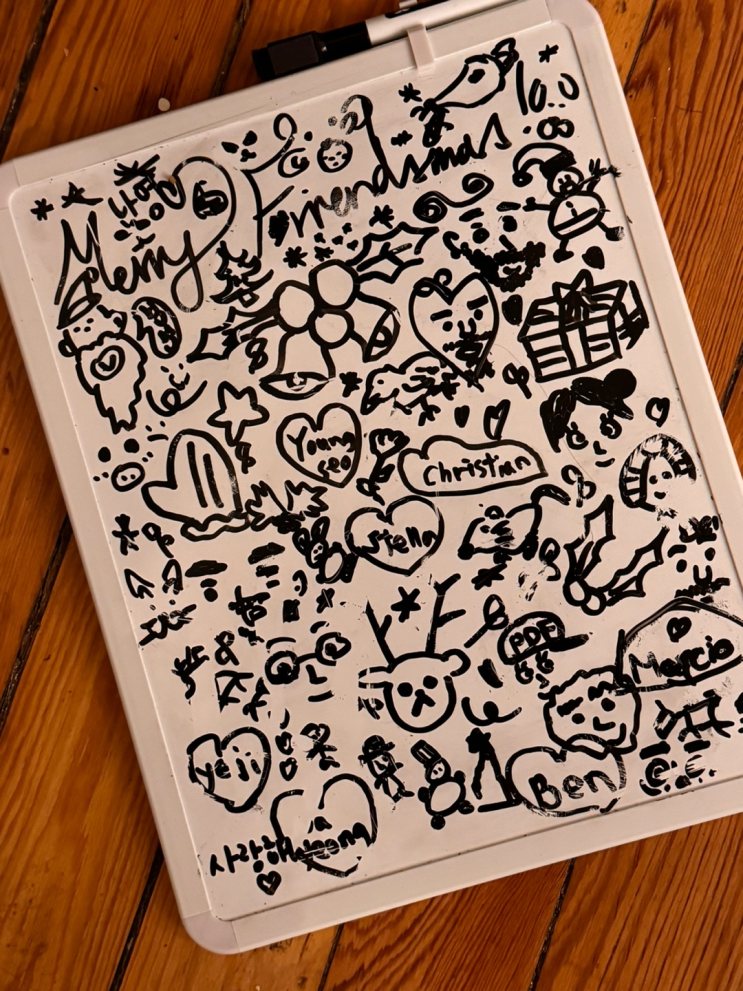 10.0
Merry Friendsmas
Young
seo
Christian
Siena
PDF
Marcio
yeji
Ben
사랑해